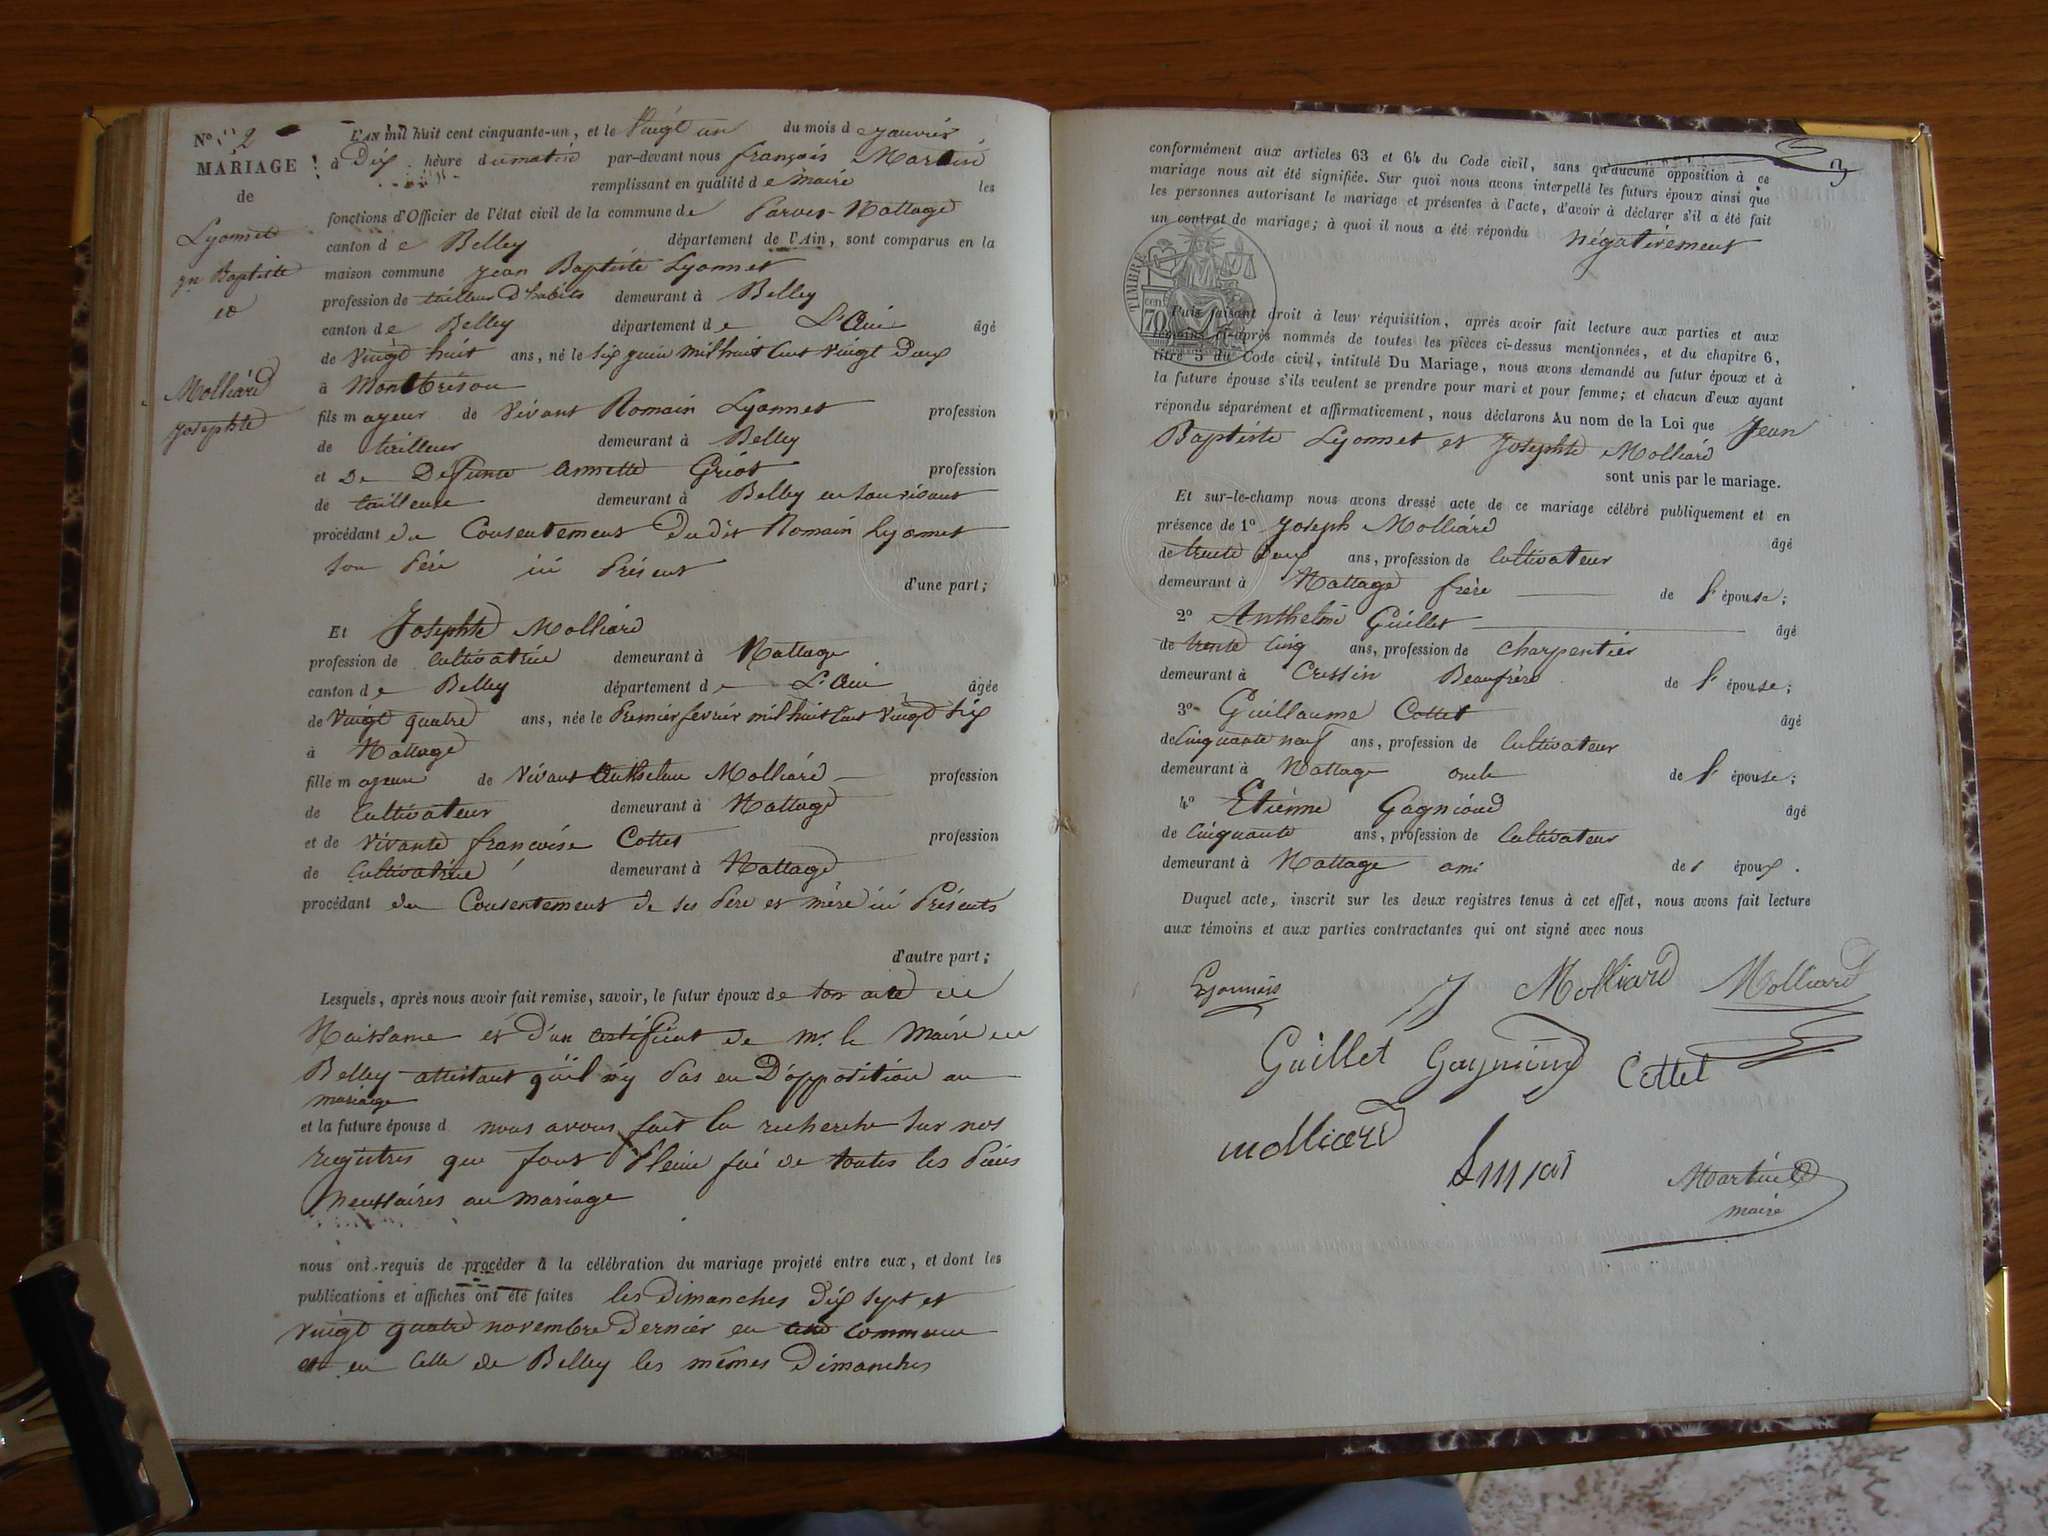 N° 2
MARIAGE
de
Lyonnet
Jn Baptiste
et
Molliard
Josephte
L'AN mil huit cent cinquante-un, et le Vingt un du mois de janvier
à Dix heure du matin par-devant nous françois Martin
remplissant en qualité de maire les
fonctions d'Officier de l'état civil de la commune de Parves-Nattage
canton de Belley département de l'Ain, sont comparus en la
maison commune Jean Baptiste Lyonnet
profession de tailleur d'habits demeurant à Belley
canton de Belley département de L'Ain âgé
de Vingt huit ans, né le six juin mil huit cent vingt Deux
à Montbrison
fils majeur de Vivant Romain Lyonnet profession
de tailleur demeurant à Belley
et De Defunte Annette Griot profession
de tailleuse demeurant à Belley en son vivant
procédant du Consentement Dudit Romain Lyonnet
son Père ici Présent
d'une part;
Et Josephte Molliard
profession de Cultivatrice demeurant à Nattage
canton de Belley département de L'Ain âgée
de Vingt quatre ans, née le Premier fevrier mil huit cent vingt six
à Nattage
fille majeure de Vivant Anthelme Molliard profession
de Cultivateur demeurant à Nattage
et de Vivante françoise Cottet profession
de Cultivatrice demeurant à Nattage
procédant du Consentement de ses Père et mère ici Présents
d'autre part;
Lesquels, après nous avoir fait remise, savoir, le futur époux de son acte de
Naissance et d'un certificat de Mr le Maire de
Belley attestant qu'il n'y Pas eu D'opposition au
mariage
et la future épouse d nous avons fait la recherche sur nos
registres que font Pleine foi de toutes les Pièces
necessaires au mariage
nous ont requis de procéder à la célébration du mariage projeté entre eux, et dont les
publications et affiches ont été faites les Dimanches dix sept et
Vingt quatre novembre Dernier en cette commune
et en Celle de Belley les mêmes Dimanches
3
conformément aux articles 63 et 64 du Code civil, sans qu'aucune opposition à ce
mariage nous ait été signifiée. Sur quoi nous avons interpellé les futurs époux ainsi que
les personnes autorisant le mariage et présentes à l'acte, d'avoir à déclarer s'il a été fait
un contrat de mariage; à quoi il nous a été répondu Négativement
TIMBRE
70 cen
Puis faisant droit à leur réquisition, après avoir fait lecture aux parties et aux
témoins ci-après nommés de toutes les pièces ci-dessus mentionnées, et du chapitre 6,
titre 5 du Code civil, intitulé Du Mariage, nous avons demandé au futur époux et à
la future épouse s'ils veulent se prendre pour mari et pour femme; et chacun d'eux ayant
répondu séparément et affirmativement, nous déclarons Au nom de la Loi que Jean
Baptiste Lyonnet et Josephte Molliard
sont unis par le mariage.
Et sur-le-champ nous avons dressé acte de ce mariage célébré publiquement et en
présence de 1° Joseph Molliard âgé
de trente deux ans, profession de Cultivateur
demeurant à Nattage frère de l'épouse;
2° Anthelme Guillet âgé
de trente cinq ans, profession de charpentier
demeurant à Cressin Beaufrère de l'épouse;
3° Guillaume Cottet âgé
de Cinquante neuf ans, profession de Cultivateur
demeurant à Nattage oncle de l'épouse;
4° Etienne Gagnioud âgé
de Cinquante ans, profession de Cultivateur
demeurant à Nattage ami de l'époux.
Duquel acte, inscrit sur les deux registres tenus à cet effet, nous avons fait lecture
aux témoins et aux parties contractantes qui ont signé avec nous
Lyonnet J Molliard Molliard
Guillet Gagnioud Cottet
molliard
Martin
maire